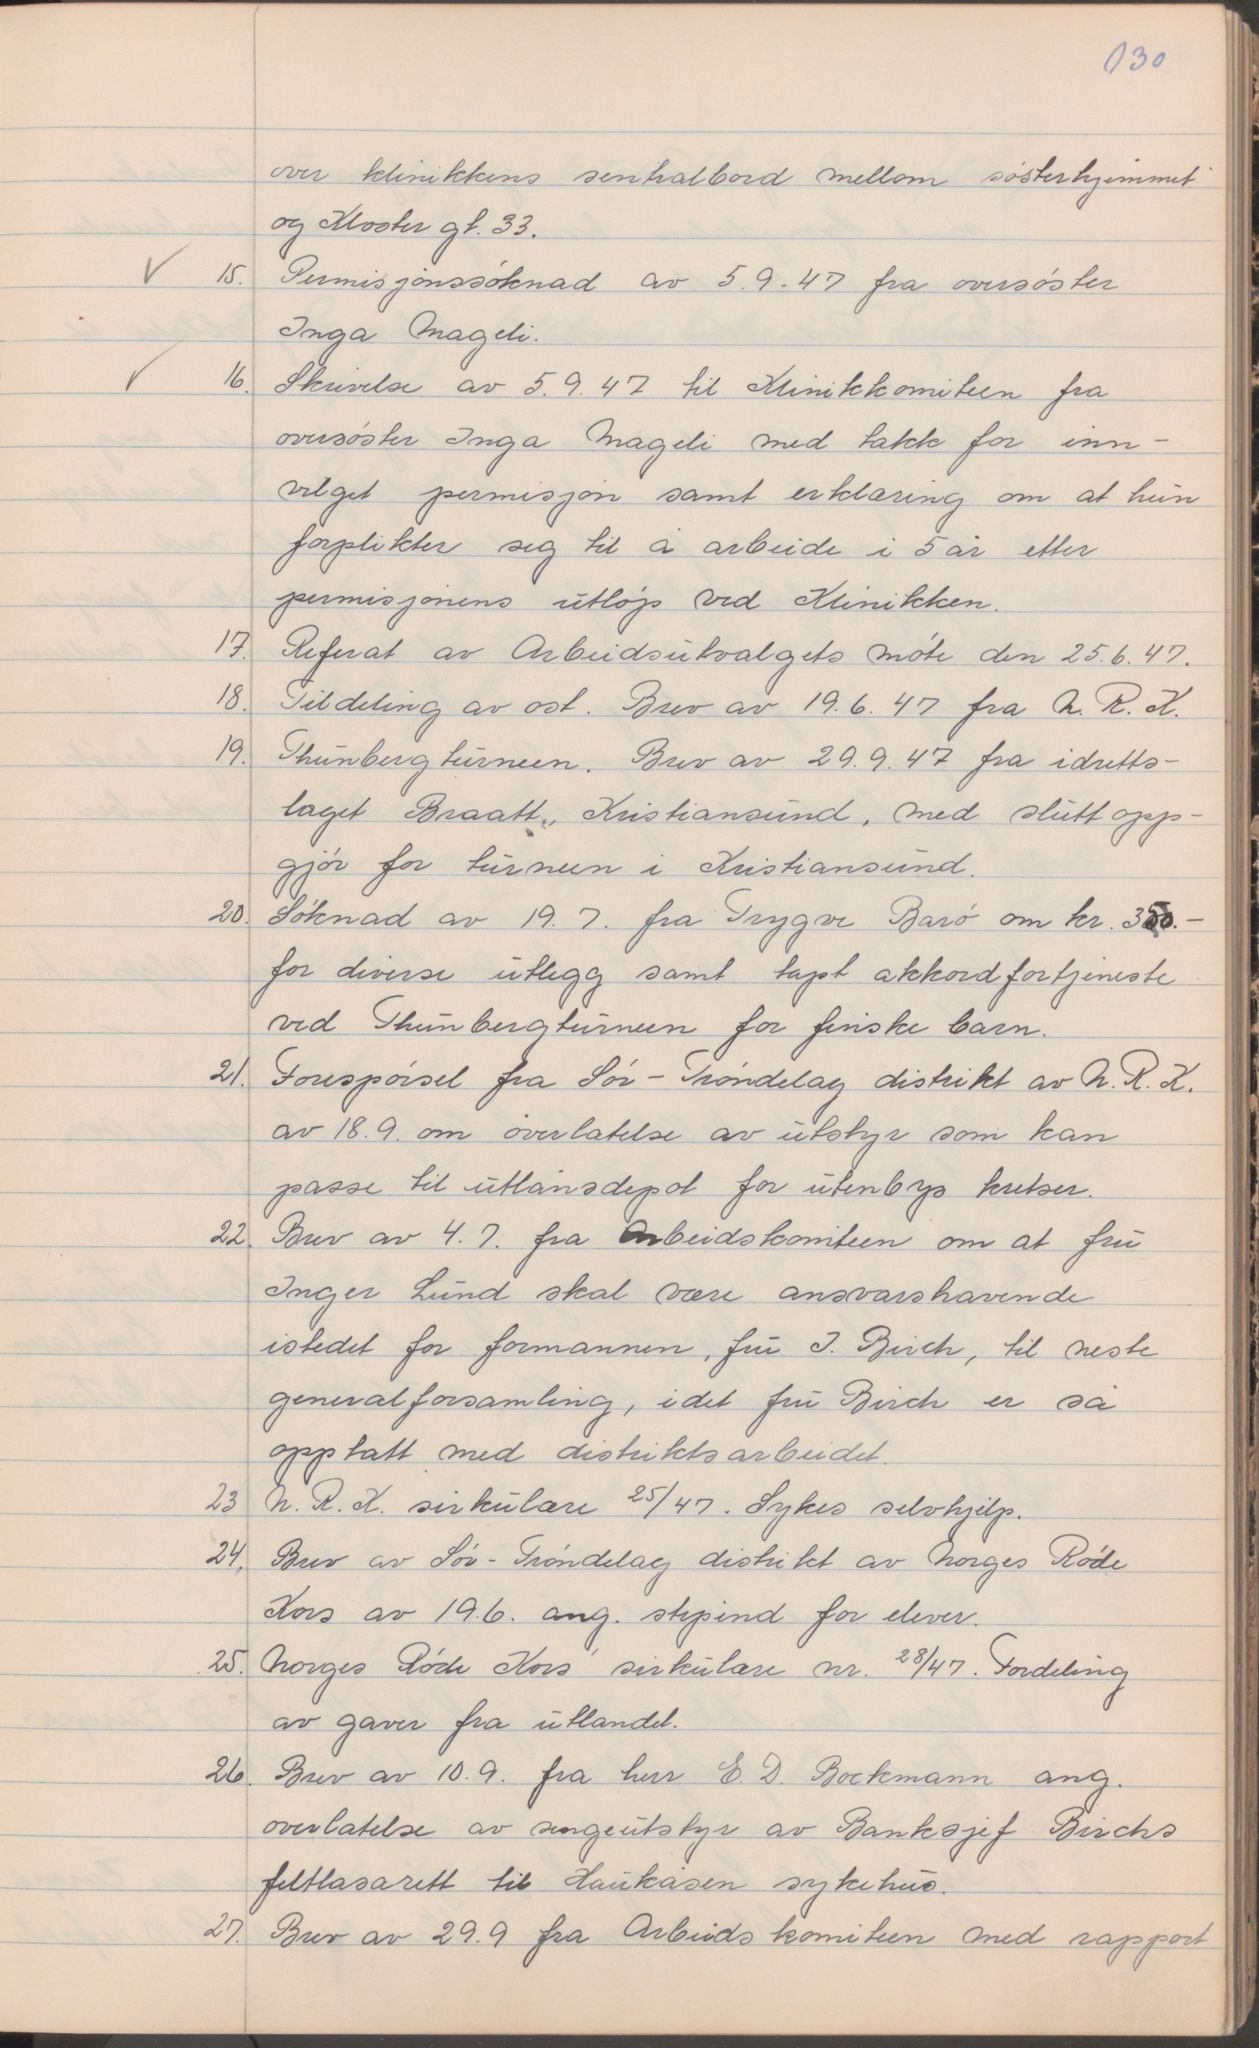 130
over klinikkens sentralbord mellom søsterhjemmet
og Kloster gt. 33.
15. Permisjonssøknad av 5.9.47 fra oversøster
Inga Mageli.
16. Skrivelse av 5.9.47 til Klinikkomiteen fra
oversøster Inga Mageli med takk for inn-
vilget permisjon samt erklæring om at hun
forplikter seg til å arbeide i 5 år etter
permisjonens utløp ved Klinikken.
17. Referat av Arbeidsutvalgets møte den 25.6.47.
18. Tildeling av ost. Brev av 19.6.47 fra N.R.K.
19. Thunbergturneen. Brev av 29.9.47 fra idretts-
laget Braatt, Kristiansund, med sluttopp-
gjør for turneen i Kristiansund.
20. Søknad av 19.7. fra Trygve Barø om kr. 350.-
for diverse utlegg samt tapt akkordfortjeneste
ved Thunbergturneen for finske barn.
21. Forespørsel fra Sør-Trøndelag distrikt av N.R.K.
av 18.9. om overlatelse av utstyr som kan
passe til utlånsdepot for utenbys kretser.
22. Brev av 4.7. fra Arbeidskomiteen om at fru
Inger Lund skal være ansvarshavende
istedet for formannen, fru I. Birch, til neste
generalforsamling, idet fru Birch er så
opptatt med distriktsarbeidet.
23 N.R.K. sirkulære 25/47. Sykes selvhjelp.
24. Brev av Sør-Trøndelag distrikt av Norges Røde
Kors av 19.6. ang. stipend for elever.
25. Norges Røde Kors' sirkulære nr. 28/47. Fordeling
av gaver fra utlandet.
26. Brev av 10.9. fra herr E. D. Bockmann ang.
overlatelse av sengeutstyr av Banksjef Birchs
feltlasarett til Haukåsen sykehus.
27. Brev av 29.9 fra Arbeidskomiteen med rapport